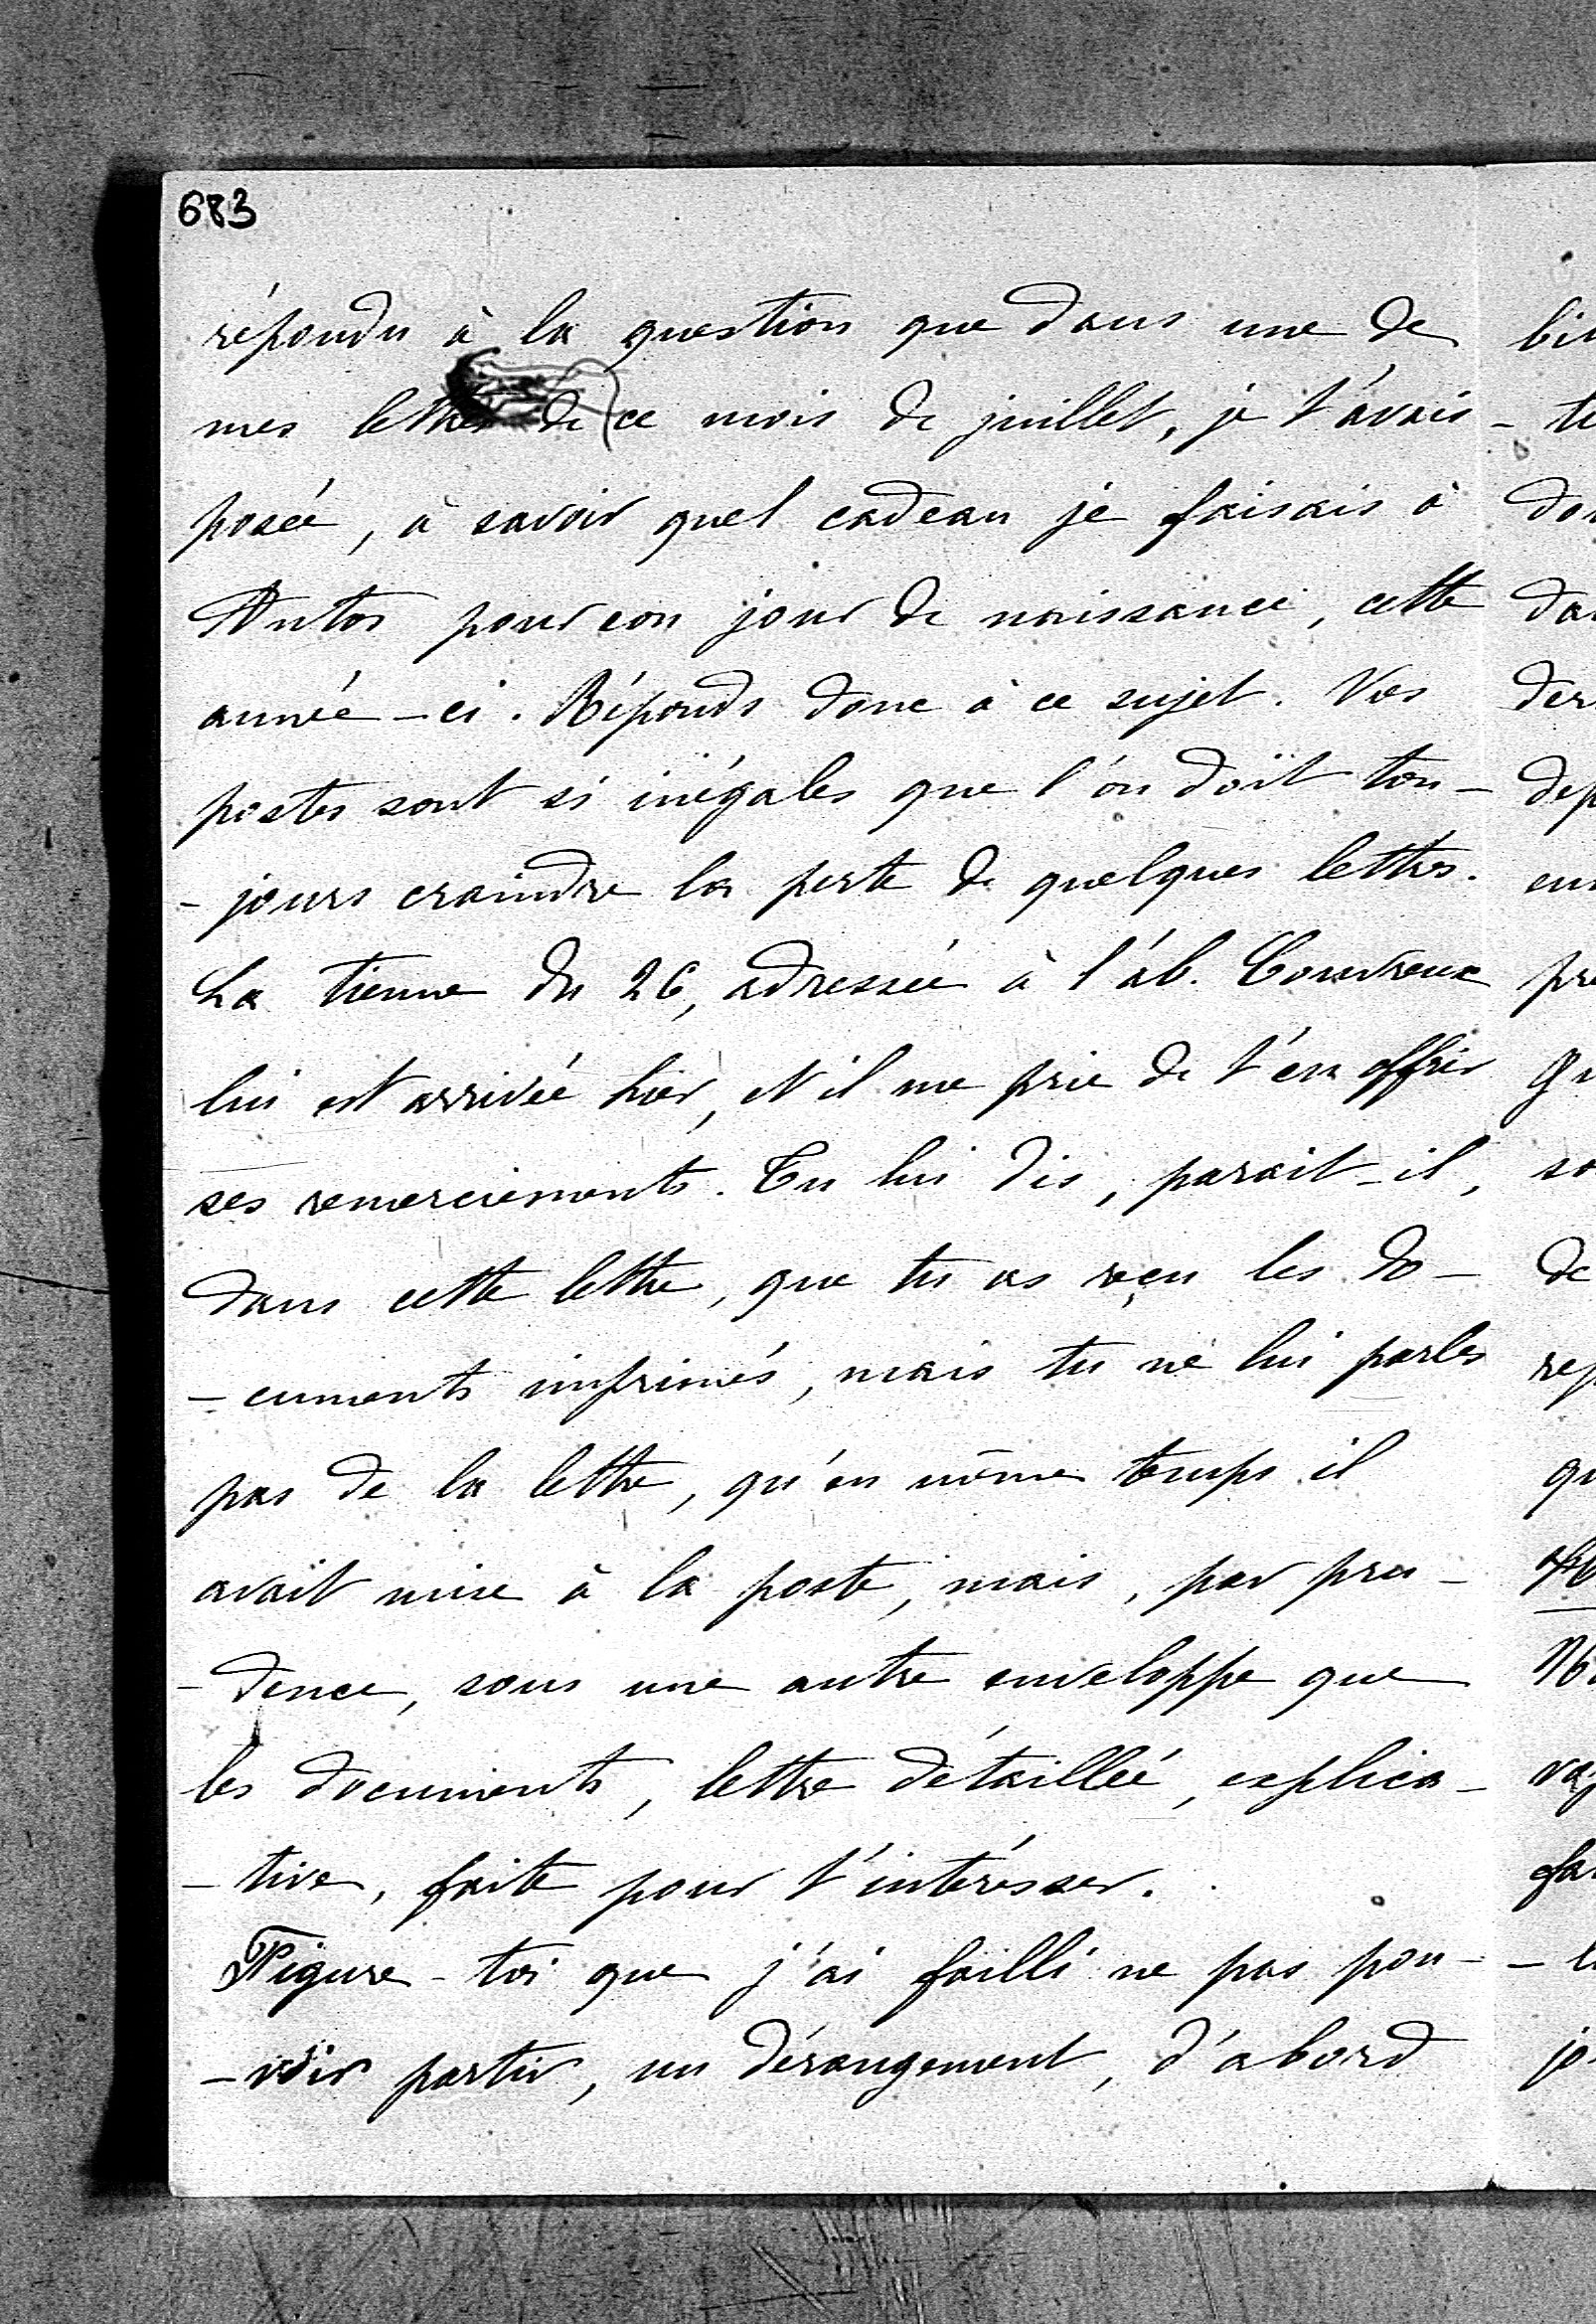 683
répondu à la question que dans une de
mes lettres de ce mois de juillet, je t'avais
posée, à savoir quel cadeau je faisais à
Antos pour son jour de naissance, cette
année-ci. Réponds donc à ce sujet. Vos
postes sont si inégales que l'on doit tou-
-jours craindre la perte de quelques lettres.
La tienne du 26, adressée à l'ab. Couvreux
lui est arrivée hier, et il me prie de t'en offrir
ses remerciements. Tu lui dis, parait-il,
dans cette lettre, que tu as reçu les do-
-cuments imprimés, mais tu ne lui parles
pas de la lettre, qu'en même temps il
avait mise à la poste, mais, par pru-
-dence, sous une autre enveloppe que
les documents, lettre détaillée, explica-
-tive, faite pour t'intéresser.
Figure-toi que j'ai failli ne pas pou-
-voir partir, un dérangement, d'abord